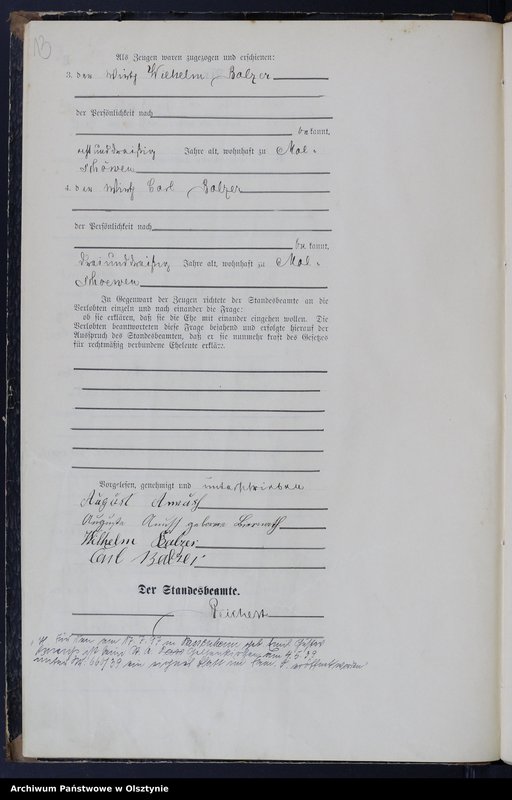 13
Als Zeugen waren zugezogen und erschienen:
3. der Wirth Wilhelm Balzer
der Persönlichkeit nach
be kannt,
acht und dreißig Jahre alt, wohnhaft zu Mal-
schöwen
4. der Wirth Carl Balzer
der Persönlichkeit nach
be kannt,
drei und dreißig Jahre alt, wohnhaft zu Mal-
schoewen
In Gegenwart der Zeugen richtete der Standesbeamte an die
Verlobten einzeln und nach einander die Frage:
ob sie erklären, daß sie die Ehe mit einander eingehen wollen. Die
Verlobten beantworteten diese Frage bejahend und erfolgte hierauf der
Ausspruch des Standesbeamten, daß er sie nunmehr kraft des Gesetzes
für rechtmäßig verbundene Eheleute erkläre.
Vorgelesen, genehmigt und unterschrieben
August
Auguste geborene
Wilhelm Balzer
Carl Balzer
Der Standesbeamte.
Reichert
am in geb.
Gelsenkirchen am
unter Nr. ein eröffnet worden
Archiwum Państwowe w Olsztynie